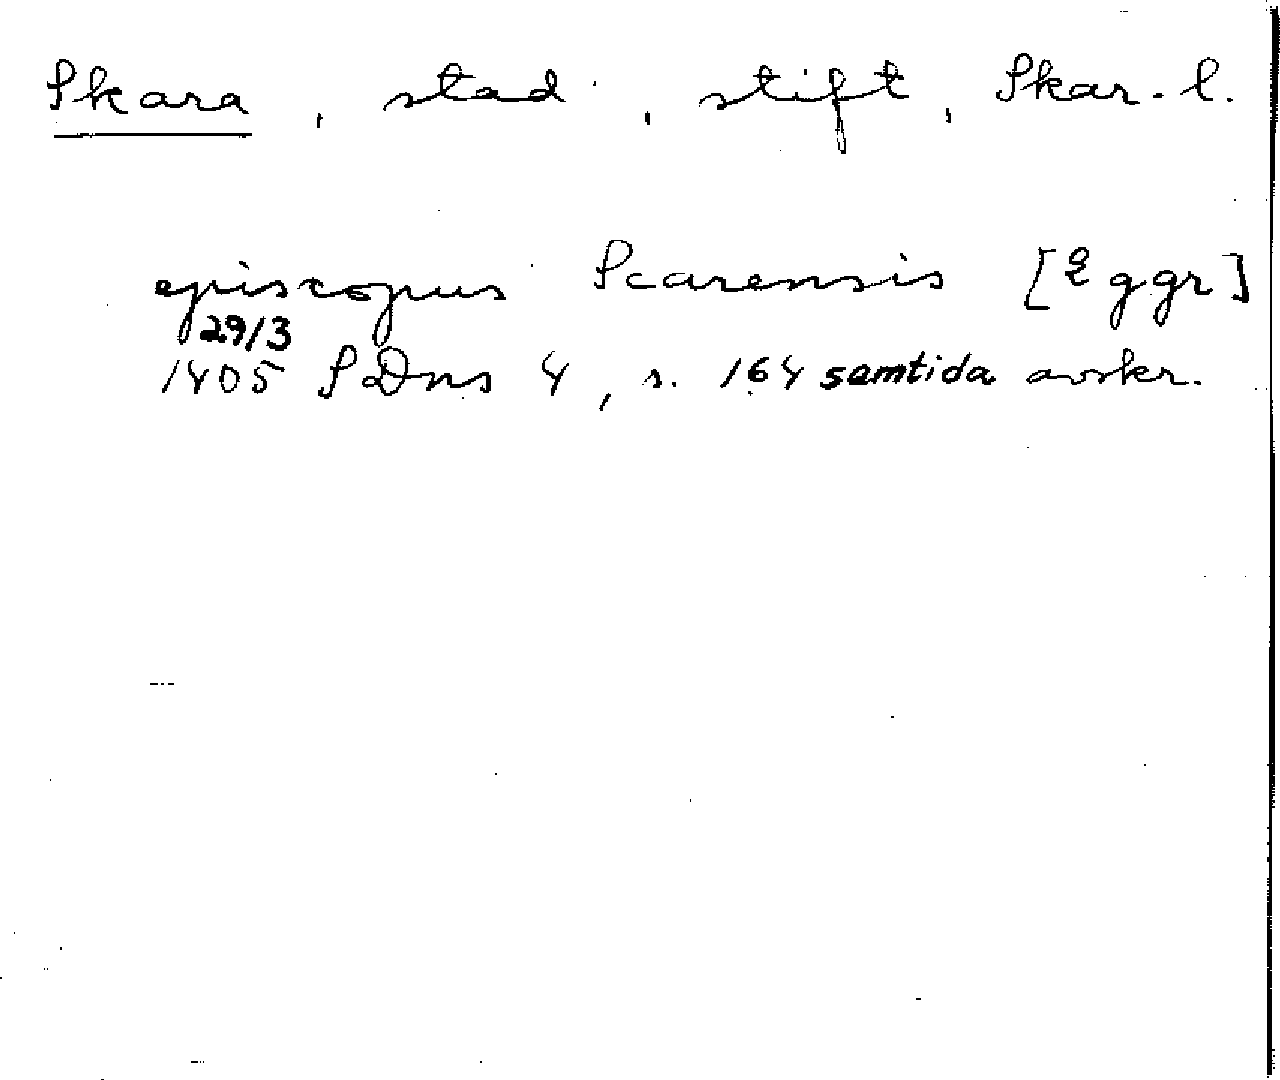 Skara, stad, stift, Skar. l.
episcopus Scarensis [2 ggr]
29/3
1405 SDns 4, s. 164 samtida avskr.